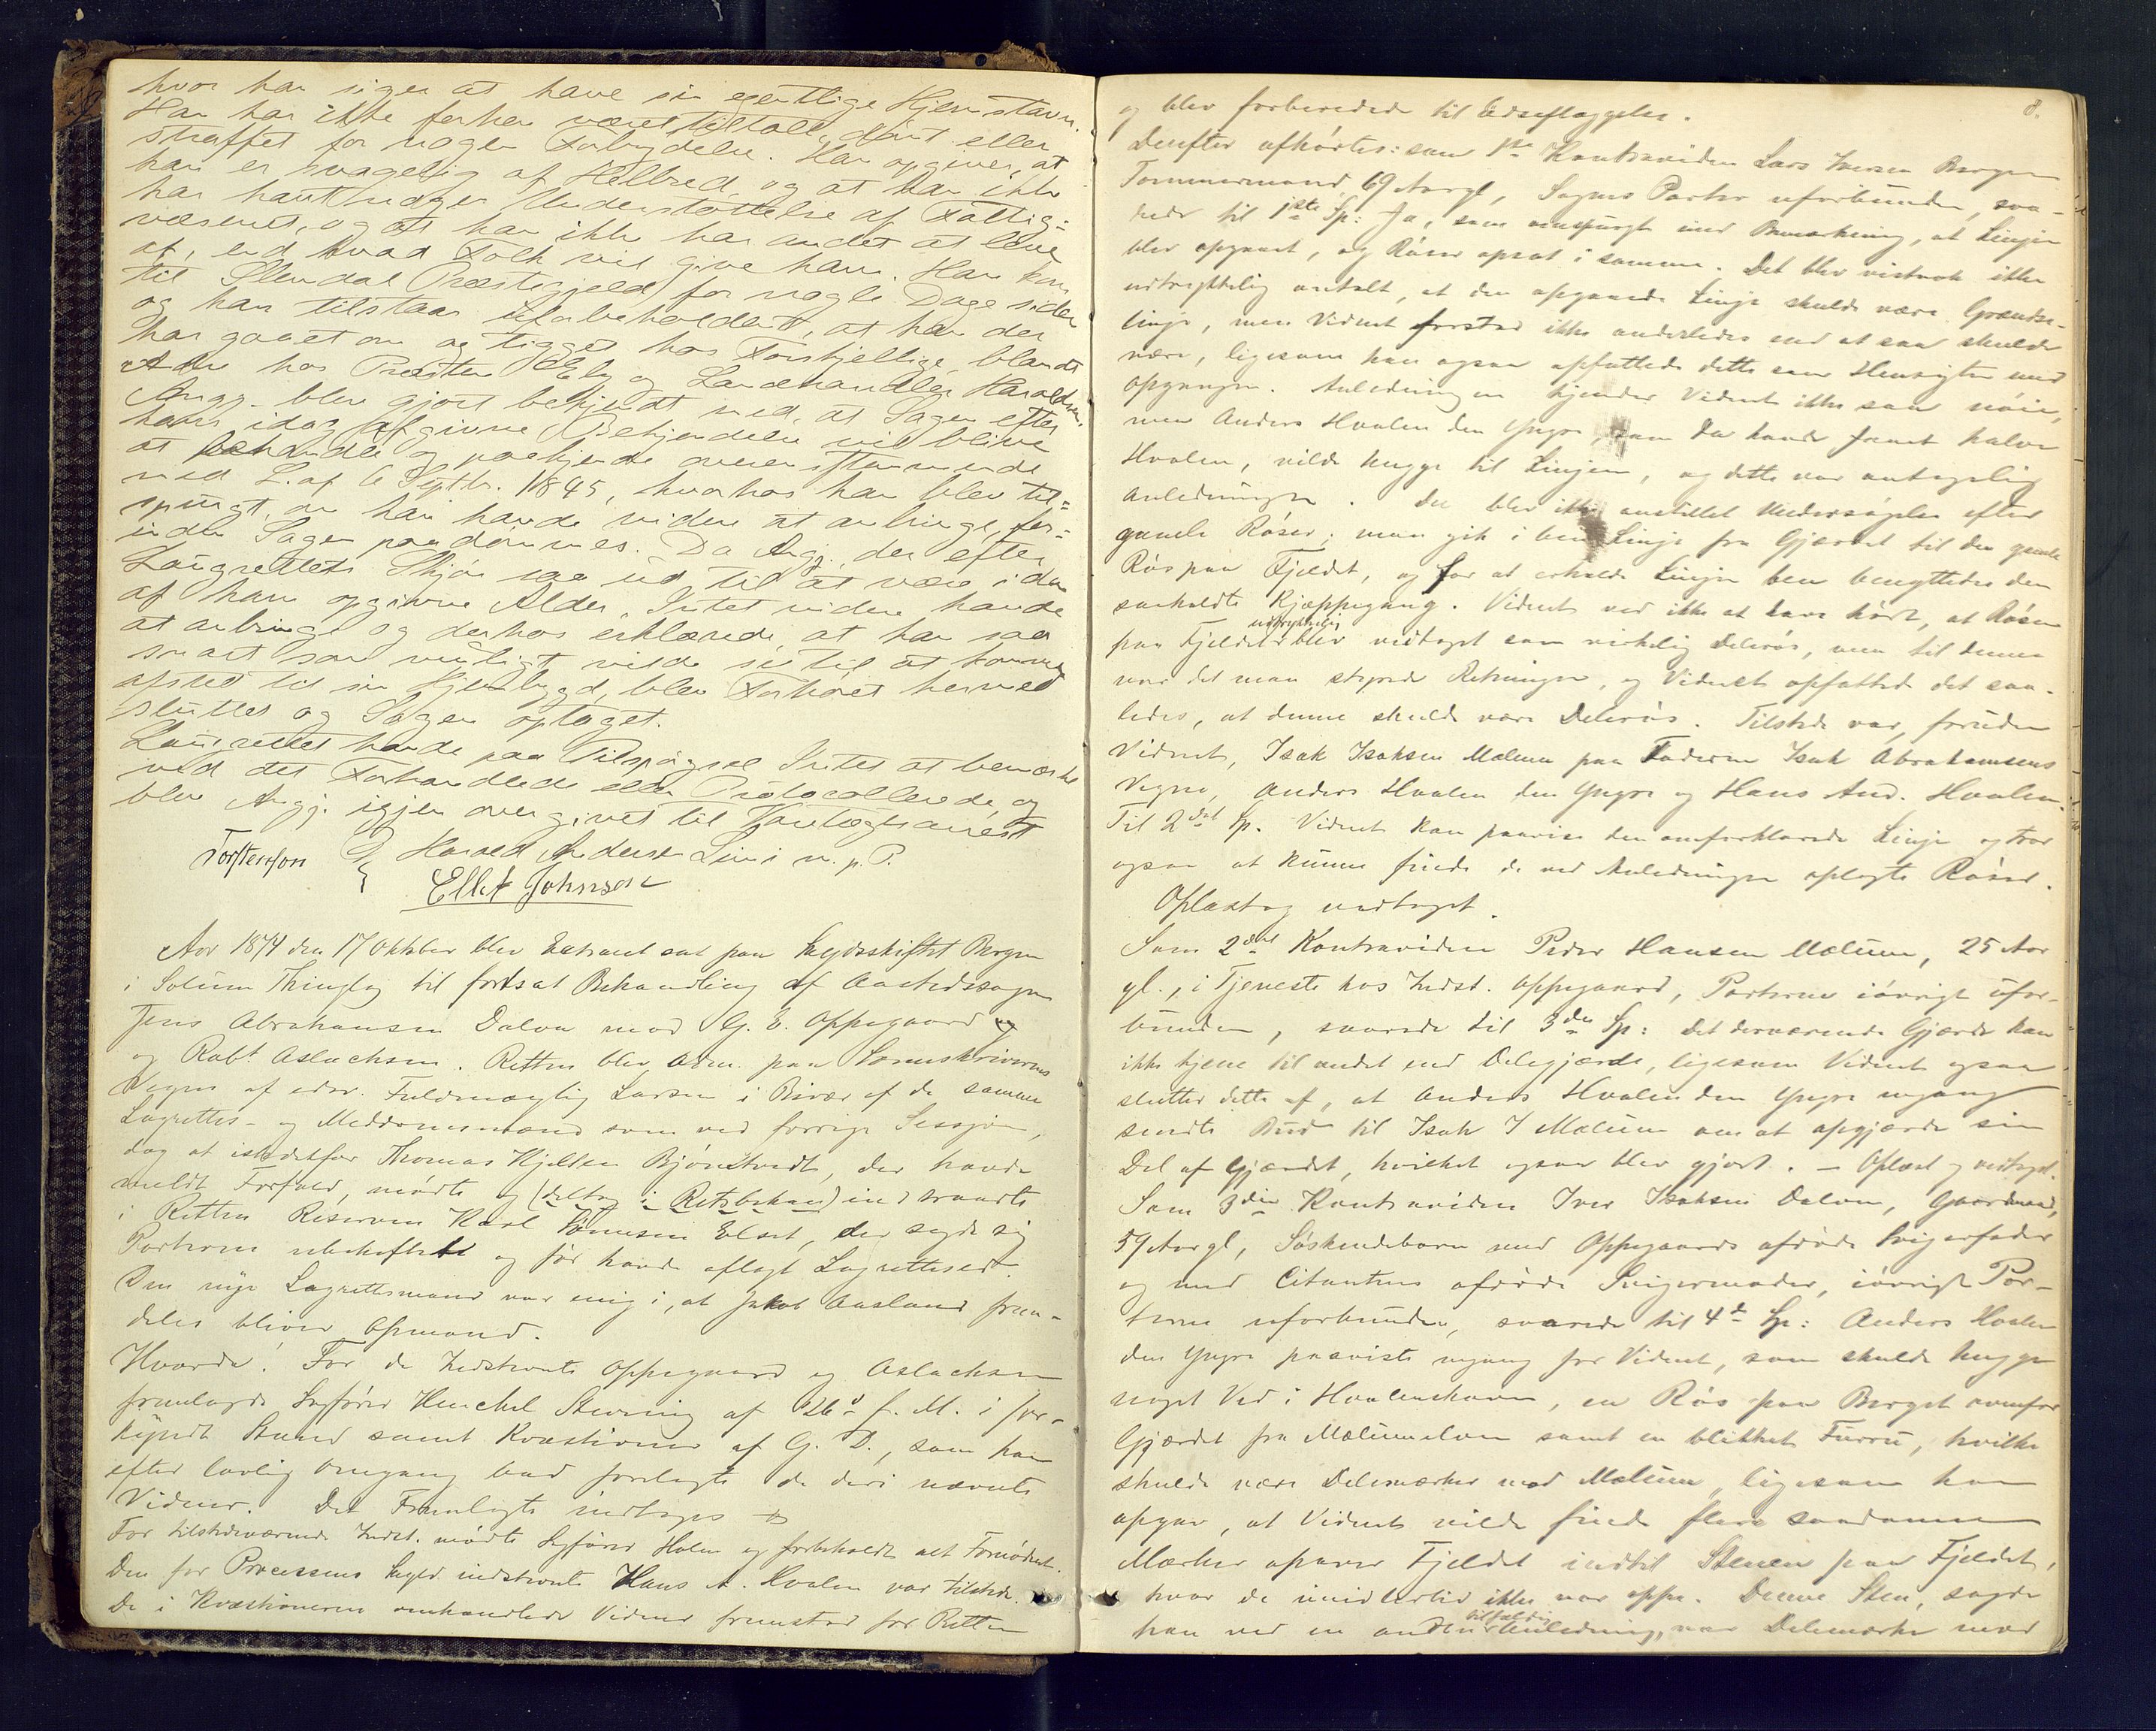 hvor han siger at have sin egentlige Hjemstavn.
Han har ikke forhen været tiltalt, dømt eller
straffet for nogen Forbrydelse. Han opgiver, at
han er svagelig af Helbred, og at han ikke
har havt nogen Understøttelse af Fattig-
væsenet, og at han ikke har andet at leve
af, end hvad Folk vil give ham. Han kom
til Slemdal Præstegjeld for nogle Dage siden
og han tilstaar uforbeholdent, at han der
har gaaet om og tigget hos Forskjellige, blandt
Andre hos Præsten Eby og Landhandler Haraldsen.
Angj. blev gjort bekjendt med, at Sagen efter
hans idag afgivne Bekjendelse vil blive
at behandle og paakjende overensstemmende
med L. af 6 Septbr. 1845, hvorhos han blev til-
spurgt, om han havde videre at anbringe, før-
inden Sagen paadømmes. Da Angj., der efter
Laugrettets Skjøn saa ud til at være i den
af ham opgivne Alder, Intet videre havde
at anbringe og derhos erklærede, at han saa
snart som muligt vilde se til at komme
afsted til sin Hjembygd, blev Forhøret hermed
sluttet og Sagen optaget.
Laugrettet havde paa Tilspørgsel Intet at bemærke
ved det Forhandlede eller Protocollerede, og
blev Angj. igjen overgivet til Varetægtsarrest
Torstenson Harald Andersen Lini m. p. P.
Ellef Johnsen
Aar 1874 den 17 Oktober blev Extraret sat paa Skydsskiftet Borgen
i Solum Thinglag til fortsat Behandling af Aastedssagen
Jens Abrahamsen Dalva mod G. E. Oppegaard og
og Robt. Aslachsen. Retten blev adm. paa Sorenskriverens
Vegne af edsv. Fuldmægtig Larsen i Bivær af de samme
Lagrettes- og Meddomsmænd som ved forrige Session,
dog at istedetfor Thomas Kjeldsen Bjønstvedt, der havde
meldt Forfald, mødte og (deltog i Retsbehan) indtraadte
i Retten Reserven Karl Tønnesen Elset, der sagde sig
Parterne ubeheftet og før havde aflagt Lagrettesed.
Den nye Lagrettesmand var enig i, at Jakob Aasland frem-
deles bliver Opmand.
Hvorda! For de Indstevnte Oppegaard og Aslachsen
fremlagde Sagfører Henchel Stevning af 26d f. M. i for-
kyndt Stand samt Kvæstioner af G. D., som han
efter lovlig Omgang bad forelagte de deri nævnte
Vidner. Det Fremlagte indtages
For tilstedeværende Indst. mødte Sagfører Holm og forbeholdt alt Fornødent.
Den for Processens Skyld indstevnte Hans A. Hvalen var tilstede.
De i Kvæstionerne omhandlede Vidner fremstod for Retten
8.
og blev forberedede til Edsaflæggelse.
Derefter afhørtes: som 1ste Kontravidne Lars Iversen Borgen
Tømmermand, 69 Aar gl, Sagens Parter uforbunden, sva-
rede til 1ste Sp: Ja, som omspurgt med Bemærkning, at Linjen
blev opgaaet, og Røser opsat i samme. Det blev vistnok ikke
udtrykkelig omtalt, at den opgaaede Linje skulde være Grændse-
linje, men Vidnet forstod ikke anderledes end at saa skulde
være, ligesom han ogsaa opfattede dette som Hensigten med
Opgangen. Anledningen kjender Vidnet ikke saa nøie,
men Anders Hvalen den Yngre, som da havde faaet halve
Hvalen, vilde hugge til Linjen, og dette var antagelig
Anledningen. Der blev ikke anstillet Undersøgelse efter
gamle Røser; man gik i ben Linje fra Gjærdet til den gamle
Røs paa Fjeldet, og for at erholde Linjen ben benyttedes den
saakaldte Kjæppegang. Vidnet ved ikke at have hørt, at Røsen
paa Fjeldet udtrykkelig blev vedtaget som virkelig Delerøs, men til denne
var det man styrede Retningen, og Vidnet opfattede det saa-
ledes, at denne skulde være Delerøs. Tilstede var, foruden
Vidnet, Isak Isaksen Mælum paa Faderen Isak Abrahamsens
Vegne, Anders Hvalen den Yngre og Hans And. Hvalen.
Til 2det Sp. Vidnet kan paavise den omforklarede Linje og tror
ogsaa at kunne finde de ved Anledningen oplagte Røser.
Oplæst og vedtaget.
Som 2det Kontravidne Peder Hansen Mælum, 25 Aar
gl., i Tjeneste hos Indst. Oppegaard, Parterne iøvrigt ufor-
bunden, svarede til 3die Sp: det derværende Gjærde kan
ikke tjene til andet end Delegjærde, ligesom Vidnet ogsaa
slutter dette af, at Anders Hvalen den Yngre engang
sendte Bud til Isak I Mælum om at opgjærde sin
Del af Gjærdet, hvilket ogsaa blev gjort. – Oplæst og vedtaget.
Som 3die Kontravidne Iver Isaksen Dalven, Gaardmand,
59 Aar gl, Søskendebarn med Oppegaards afdøde Svigerfader
og med Citantens afdøde Svigermoder, iøvrigt Par-
terne uforbunden, svarede til 4de Sp: Anders Hvalen
den Yngre paaviste engang for Vidnet, som skulde hugge
noget Ved i Hvalenskoven, en Røs paa Berget ovenfor
Gjærdet fra Mælumelven samt en blikket Furru, hvilke
skulde være Delemærker mod Mælum, ligesom han
opgav, at Vidnet vilde finde flere saadanne
Mærker opover Fjeldet indtil Stenen paa Fjeldet,
hvor de imidlertid ikke var oppe. Denne Sten, sagde
han ved en anden tilfældig Anledning, var Delemærke mod